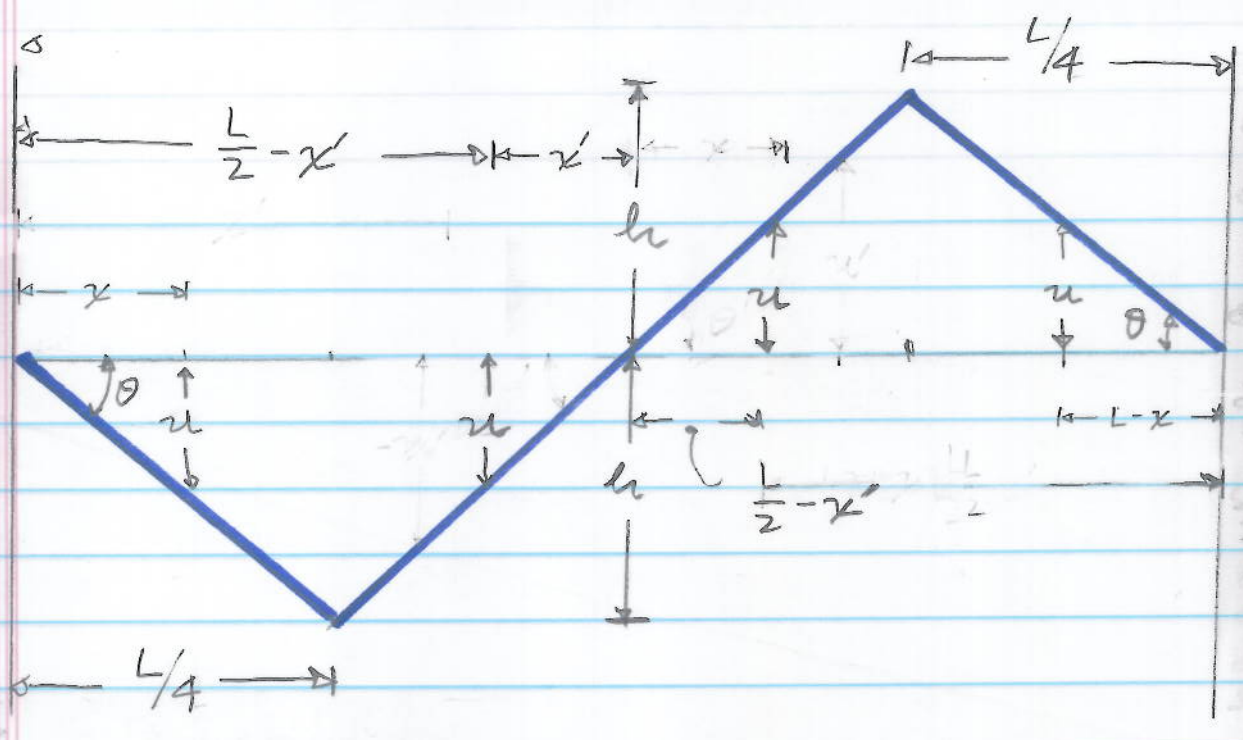 L/4
L/2 - x'
x'
x
h
x
u
u
θ
θ
u
u
L-x
h
L/2 - x'
L/4